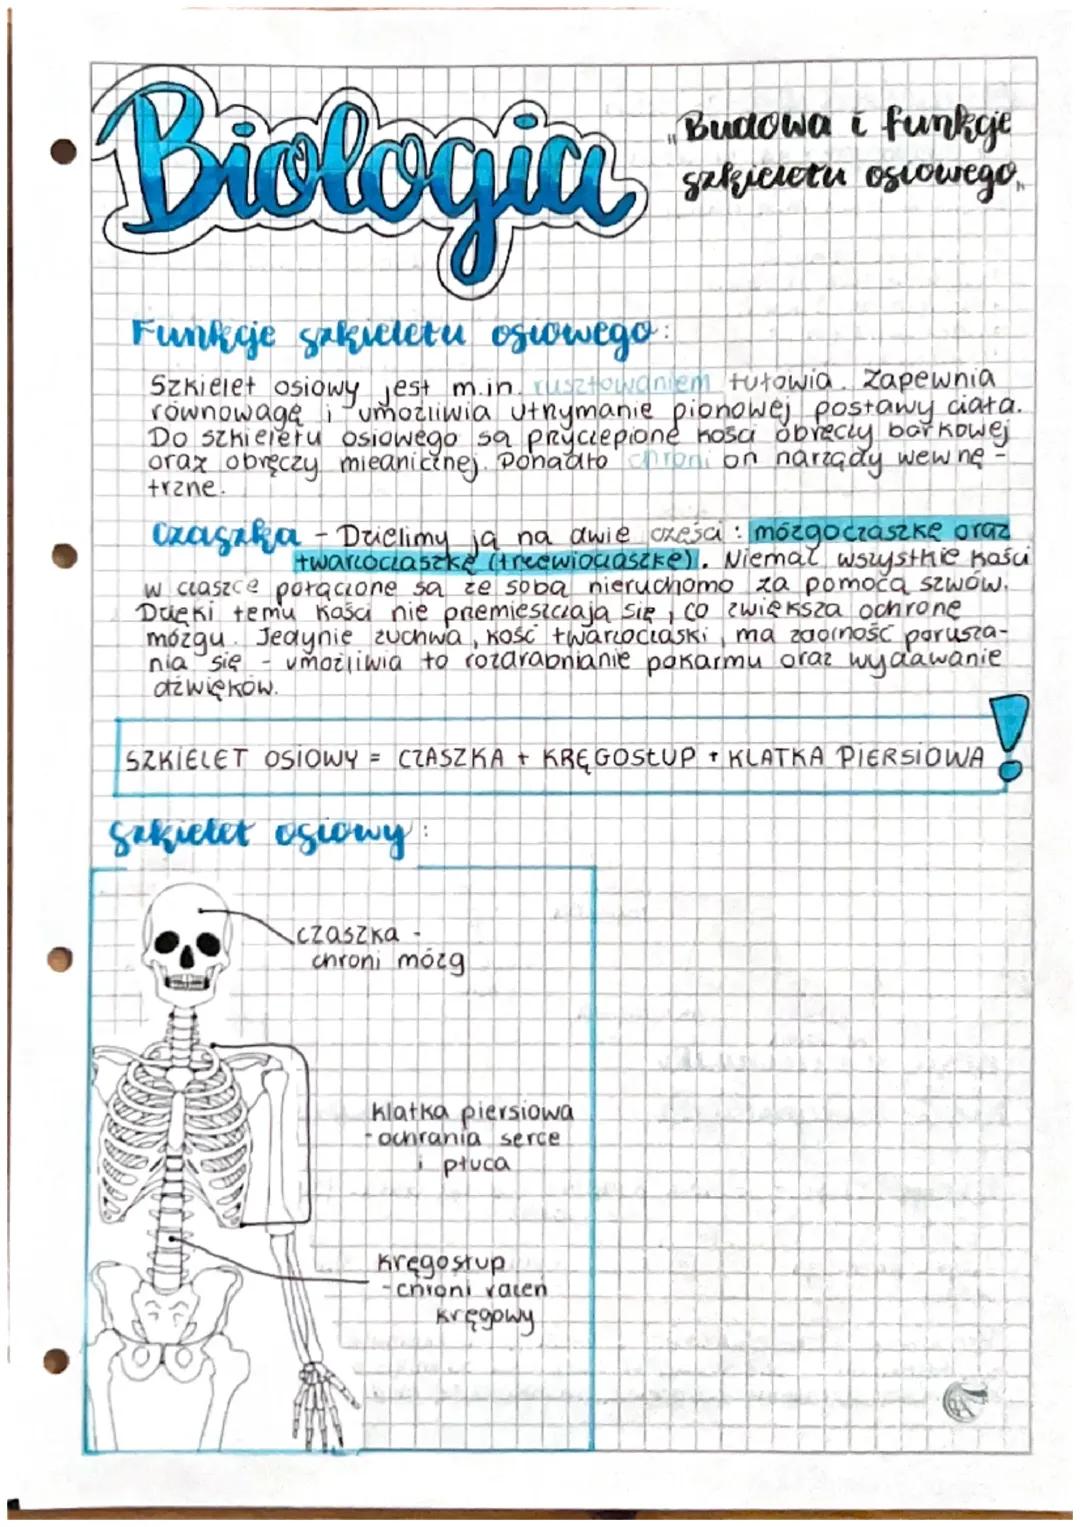 Biologia
„Budowa i funkcje
szkieletu osiowego„
Funkcje szkieletu osiowego:
Szkielet osiowy jest m.in. rusztowaniem tułowia. Zapewnia
równowagę i umożliwia utrzymanie pionowej postawy ciała.
Do szkieletu osiowego są przyczepione kości obręczy barkowej
oraz obręczy miednicznej. Ponadto chroni on narządy wewnę-
trzne.
Czaszka - Dzielimy ją na dwie części: mózgoczaszkę oraz
twarzoczaszkę (trzewioczaszkę). Niemal wszystkie kości
w czaszce połączone są ze sobą nieruchomo za pomocą szwów.
Dzięki temu kości nie przemieszczają się, co zwiększa ochronę
mózgu. Jedynie żuchwa, kość twarzoczaszki, ma zdolność porusza-
nia się - umożliwia to rozdrabnianie pokarmu oraz wydawanie
dźwięków.
SZKIELET OSIOWY = CZASZKA + KRĘGOSŁUP + KLATKA PIERSIOWA
!
Szkielet osiowy:
czaszka -
chroni mózg
klatka piersiowa
- ochrania serce
i płuca
kręgosłup
- chroni rdzeń
kręgowy